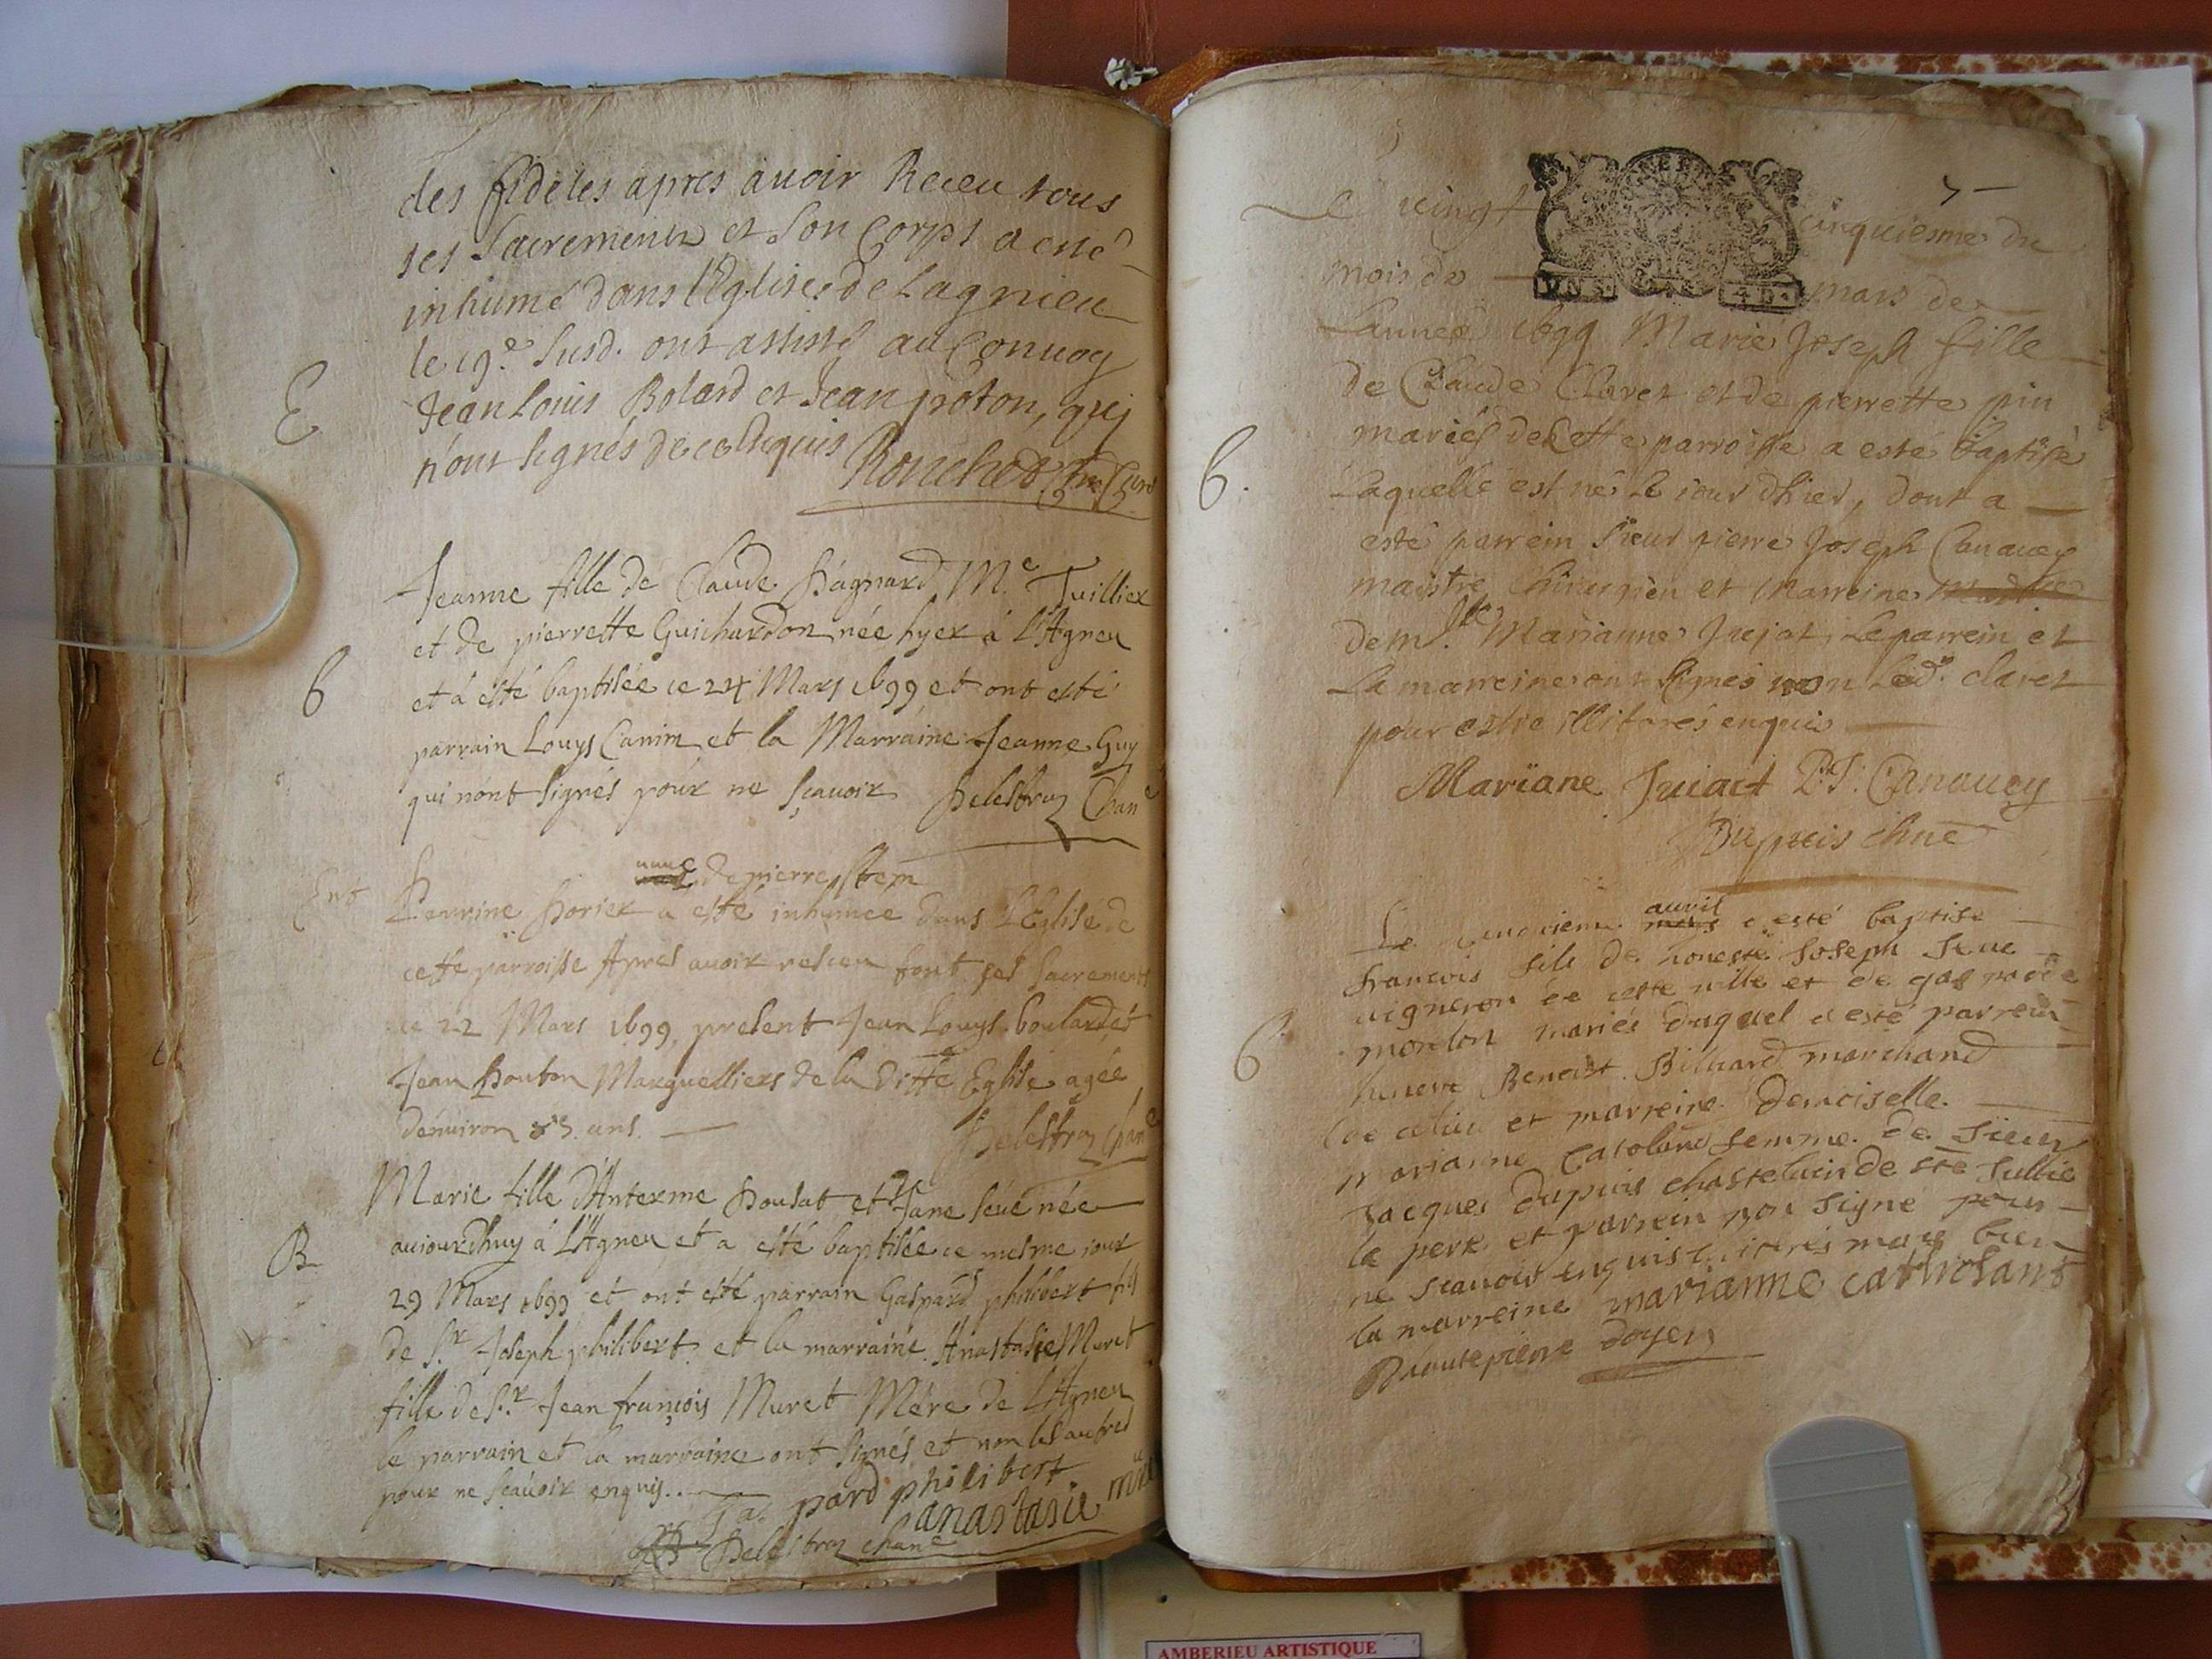 des fideles apres auoir Receu tous
ses sacrements et son Corps a esté
inhumé dans l'Eglise de Lagnieu
le 19e susd. ont assisté au Conuoy
E
Jean Louis Bolard et Jean proton, quj
n'ont signés de ce enquis Ronchet
Jeanne fille de Claude Me Tuillier
et de pierrette Guichardon née hyer à L'Agneu
B
et à esté baptisée ce 24 Mars 1699 et ont esté
parrain Louys Canim et la Marraine Jeanne Guy
qui n'ont signés pour ne sçauoir Delestraz Chane
de pierre
Ent
Perrine a esté inhumée dans l'Eglise de
cette parroisse Apres auoir receu tout ses sacrements
ce 22 Mars 1699, present Jean Louys boulard, et
Jean Marguelliers de la Ditte Eglise agée
d'enuiron ans. Delestraz Chane
Marie fille d'Anterme et Jane née
B.
auiourd'huy à L'Agneu et a esté baptisée ce mesme iour
29 Mars 1699 et ont esté parrain Gaspard philibert fils
de Sr Joseph philibert et la marraine Anastasie Muret
fille de Sr Jean françois Muret Mere de L'Agneu
le parrain et la marraine ont signés et non les autres
pour ne sçauoir enquis..
Gaspard philibert
anastasie
Delestraz chane
Le vingt cinquiesme du
mois de mars de
Lannee 1699 Marie Joseph fille
de Claude Claret et de pierrette pin
mariés de Cette parroisse a esté baptisé
B.
Laquelle est né le iour d'hier, dont a
esté parrein sieur pierre Joseph Canauey
maistre Chirurgien et Marreine
dem.lle Marianne Jujat, Le parrein et
La marreine ont signés non Led. claret
pour estre illitarés enquis
Mariane Juiact P. J. Canauey
Dupuis chne
auuril
Le a esté baptise
francois fils de honeste Joseph
uigneron de cette uille et de gasparde
monton mariés duquel a esté parrein
B.
Benoist Billiard marchand
et marreine Demoiselle
marianne Catoland femme de sieur
Jacques dupuis chastelain de ste Jullie
le pere et parrein non signé pour
ne scauoir enquis mais bien
la marreine marianne catholans
Dhautepierre doyen
AMBERIEU ARTISTIQUE